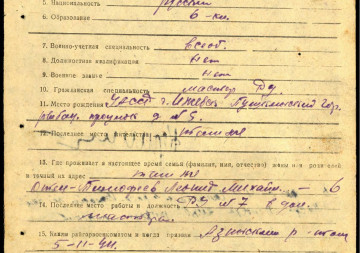 5. Национальность русский
6. Образование 6 кл.
7. Военно-учетная специальность всооб.
8. Должностная квалификация нет
9. Военное звание нет
10. Гражданская специальность мастер РУ
11. Место рождения УАССР г. Ижевск Пушкинский гор.
д N 5.
12. Последнее место жительства
13. Где проживает в настоящее время семья (фамилия, имя, отчество) жены или родителей
и точный их адрес
Отец Тимофеев Леонид Михайл.
14. Последнее место работы и должность РУ N 7 в дол.
15. Каким райгорвоенкоматом и когда призван Азинским р-
5-11-41.